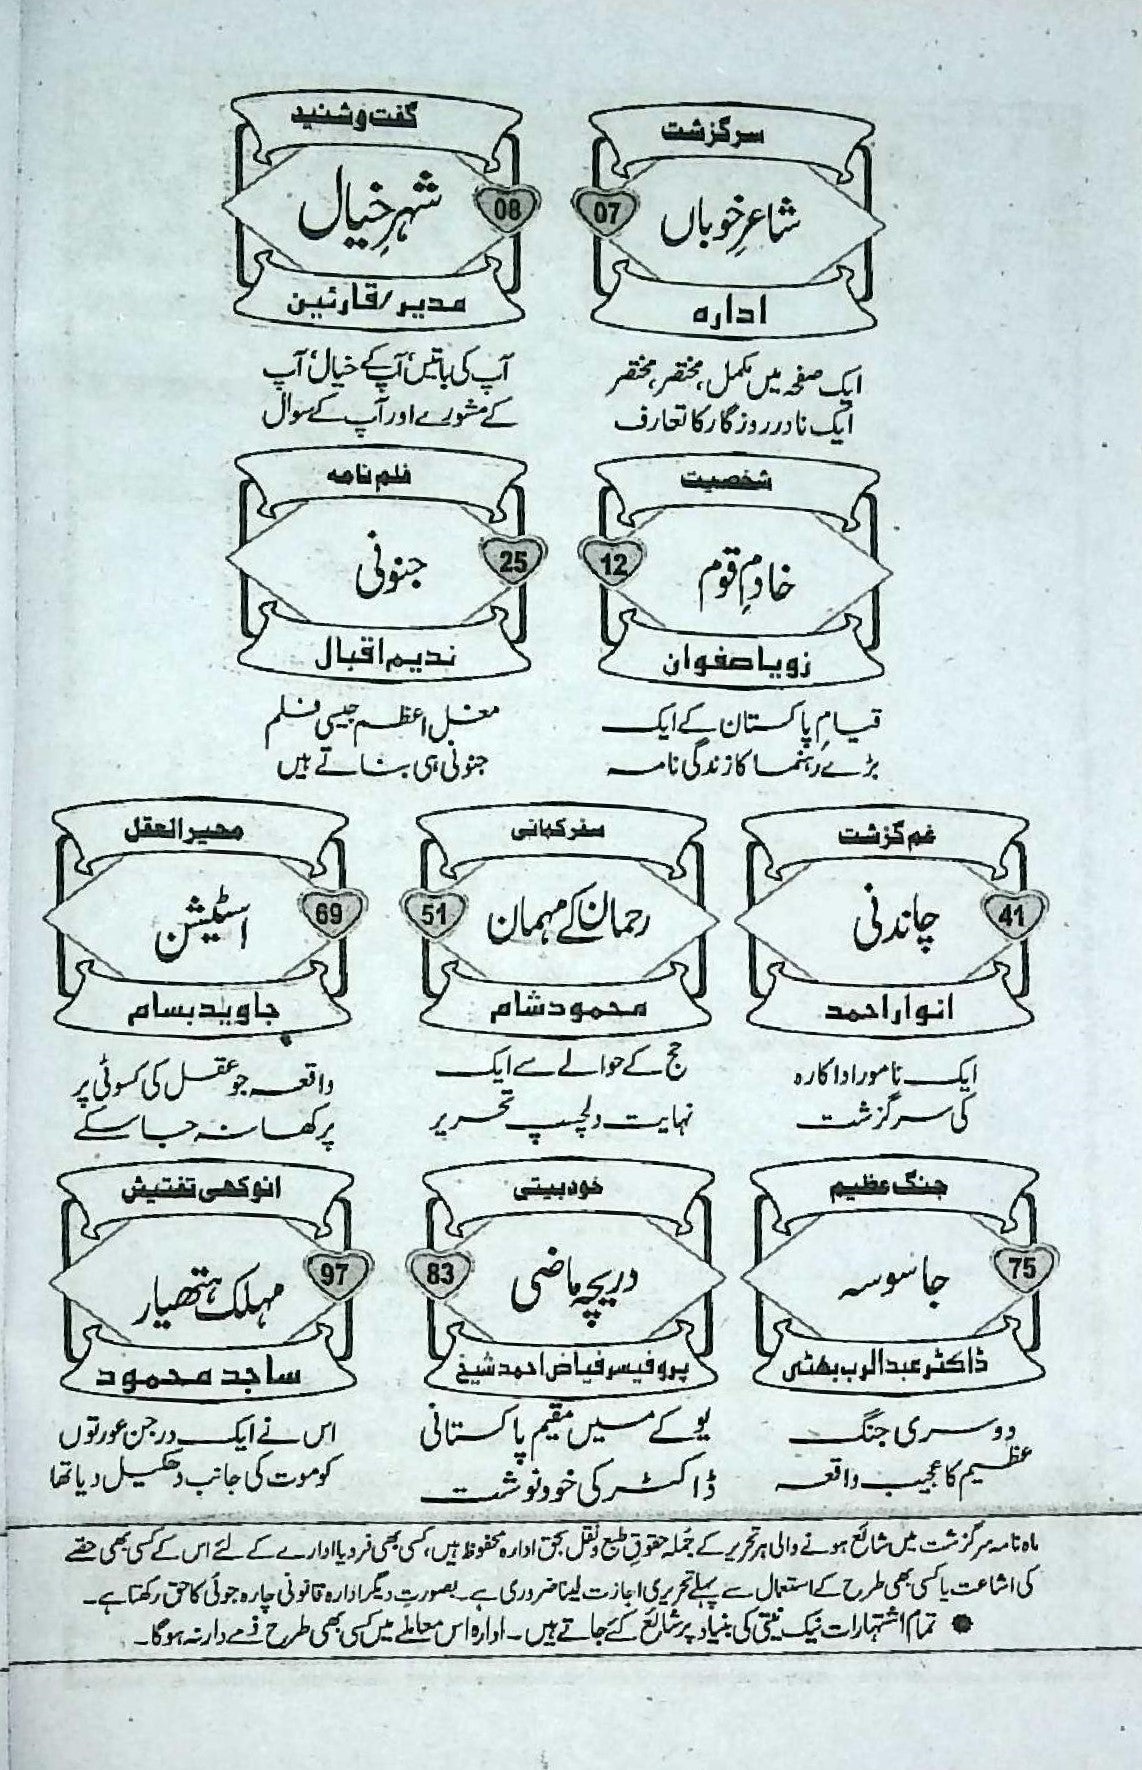 سرگزشت
شاعرِ خوباں
07
ادارہ
ایک صفحہ میں مکمل، مختصر، مختصر
ایک نادر روزگار کا تعارف
گفت و شنید
شہرِ خیال
08
مدیر/قارئین
آپ کی باتیں، آپ کے خیال، آپ
کے مشورے اور آپ کے سوال
شخصیت
خادمِ قوم
12
زویا صفوان
قیامِ پاکستان کے ایک
بڑے رہنما کا زندگی نامہ
فلم نامہ
جنونی
25
ندیم اقبال
مغل اعظم جیسی فلم
جنونی ہی بناتے ہیں
غم گزشت
چاندنی
41
انوار احمد
ایک نامور اداکارہ
کی سرگزشت
سفر کہانی
رحمان کے مہمان
51
محمود شام
حج کے حوالے سے ایک
نہایت دلچسپ تحریر
محیر العقل
اسٹیشن
69
جاوید بسام
واقعہ جو عقل کی کسوٹی پر
پرکھا نہ جا سکے
جنگ عظیم
جاسوسہ
75
ڈاکٹر عبدالرب بھٹی
دوسری جنگ
عظیم کا عجیب واقعہ
خود بیتی
دریچہ ماضی
83
پروفیسر فیاض احمد شیخ
یو کے میں مقیم پاکستانی
ڈاکٹر کی خود نوشت
انوکھی تفتیش
مہلک ہتھیار
97
ساجد محمود
اس نے ایک درجن عورتوں
کو موت کی جانب دھکیل دیا تھا
ماہ نامہ سرگزشت میں شائع ہونے والی ہر تحریر کے جملہ حقوق طبع و نقل بحق ادارہ محفوظ ہیں، کسی بھی فرد یا ادارے کے لئے اس کے کسی بھی حصے
کی اشاعت یا کسی بھی طرح کے استعمال سے پہلے تحریری اجازت لینا ضروری ہے۔ بصورت دیگر ادارہ قانونی چارہ جوئی کا حق رکھتا ہے۔
● تمام اشتہارات نیک نیتی کی بنیاد پر شائع کئے جاتے ہیں۔ ادارہ اس معاملے میں کسی بھی طرح ذمے دار نہ ہوگا۔